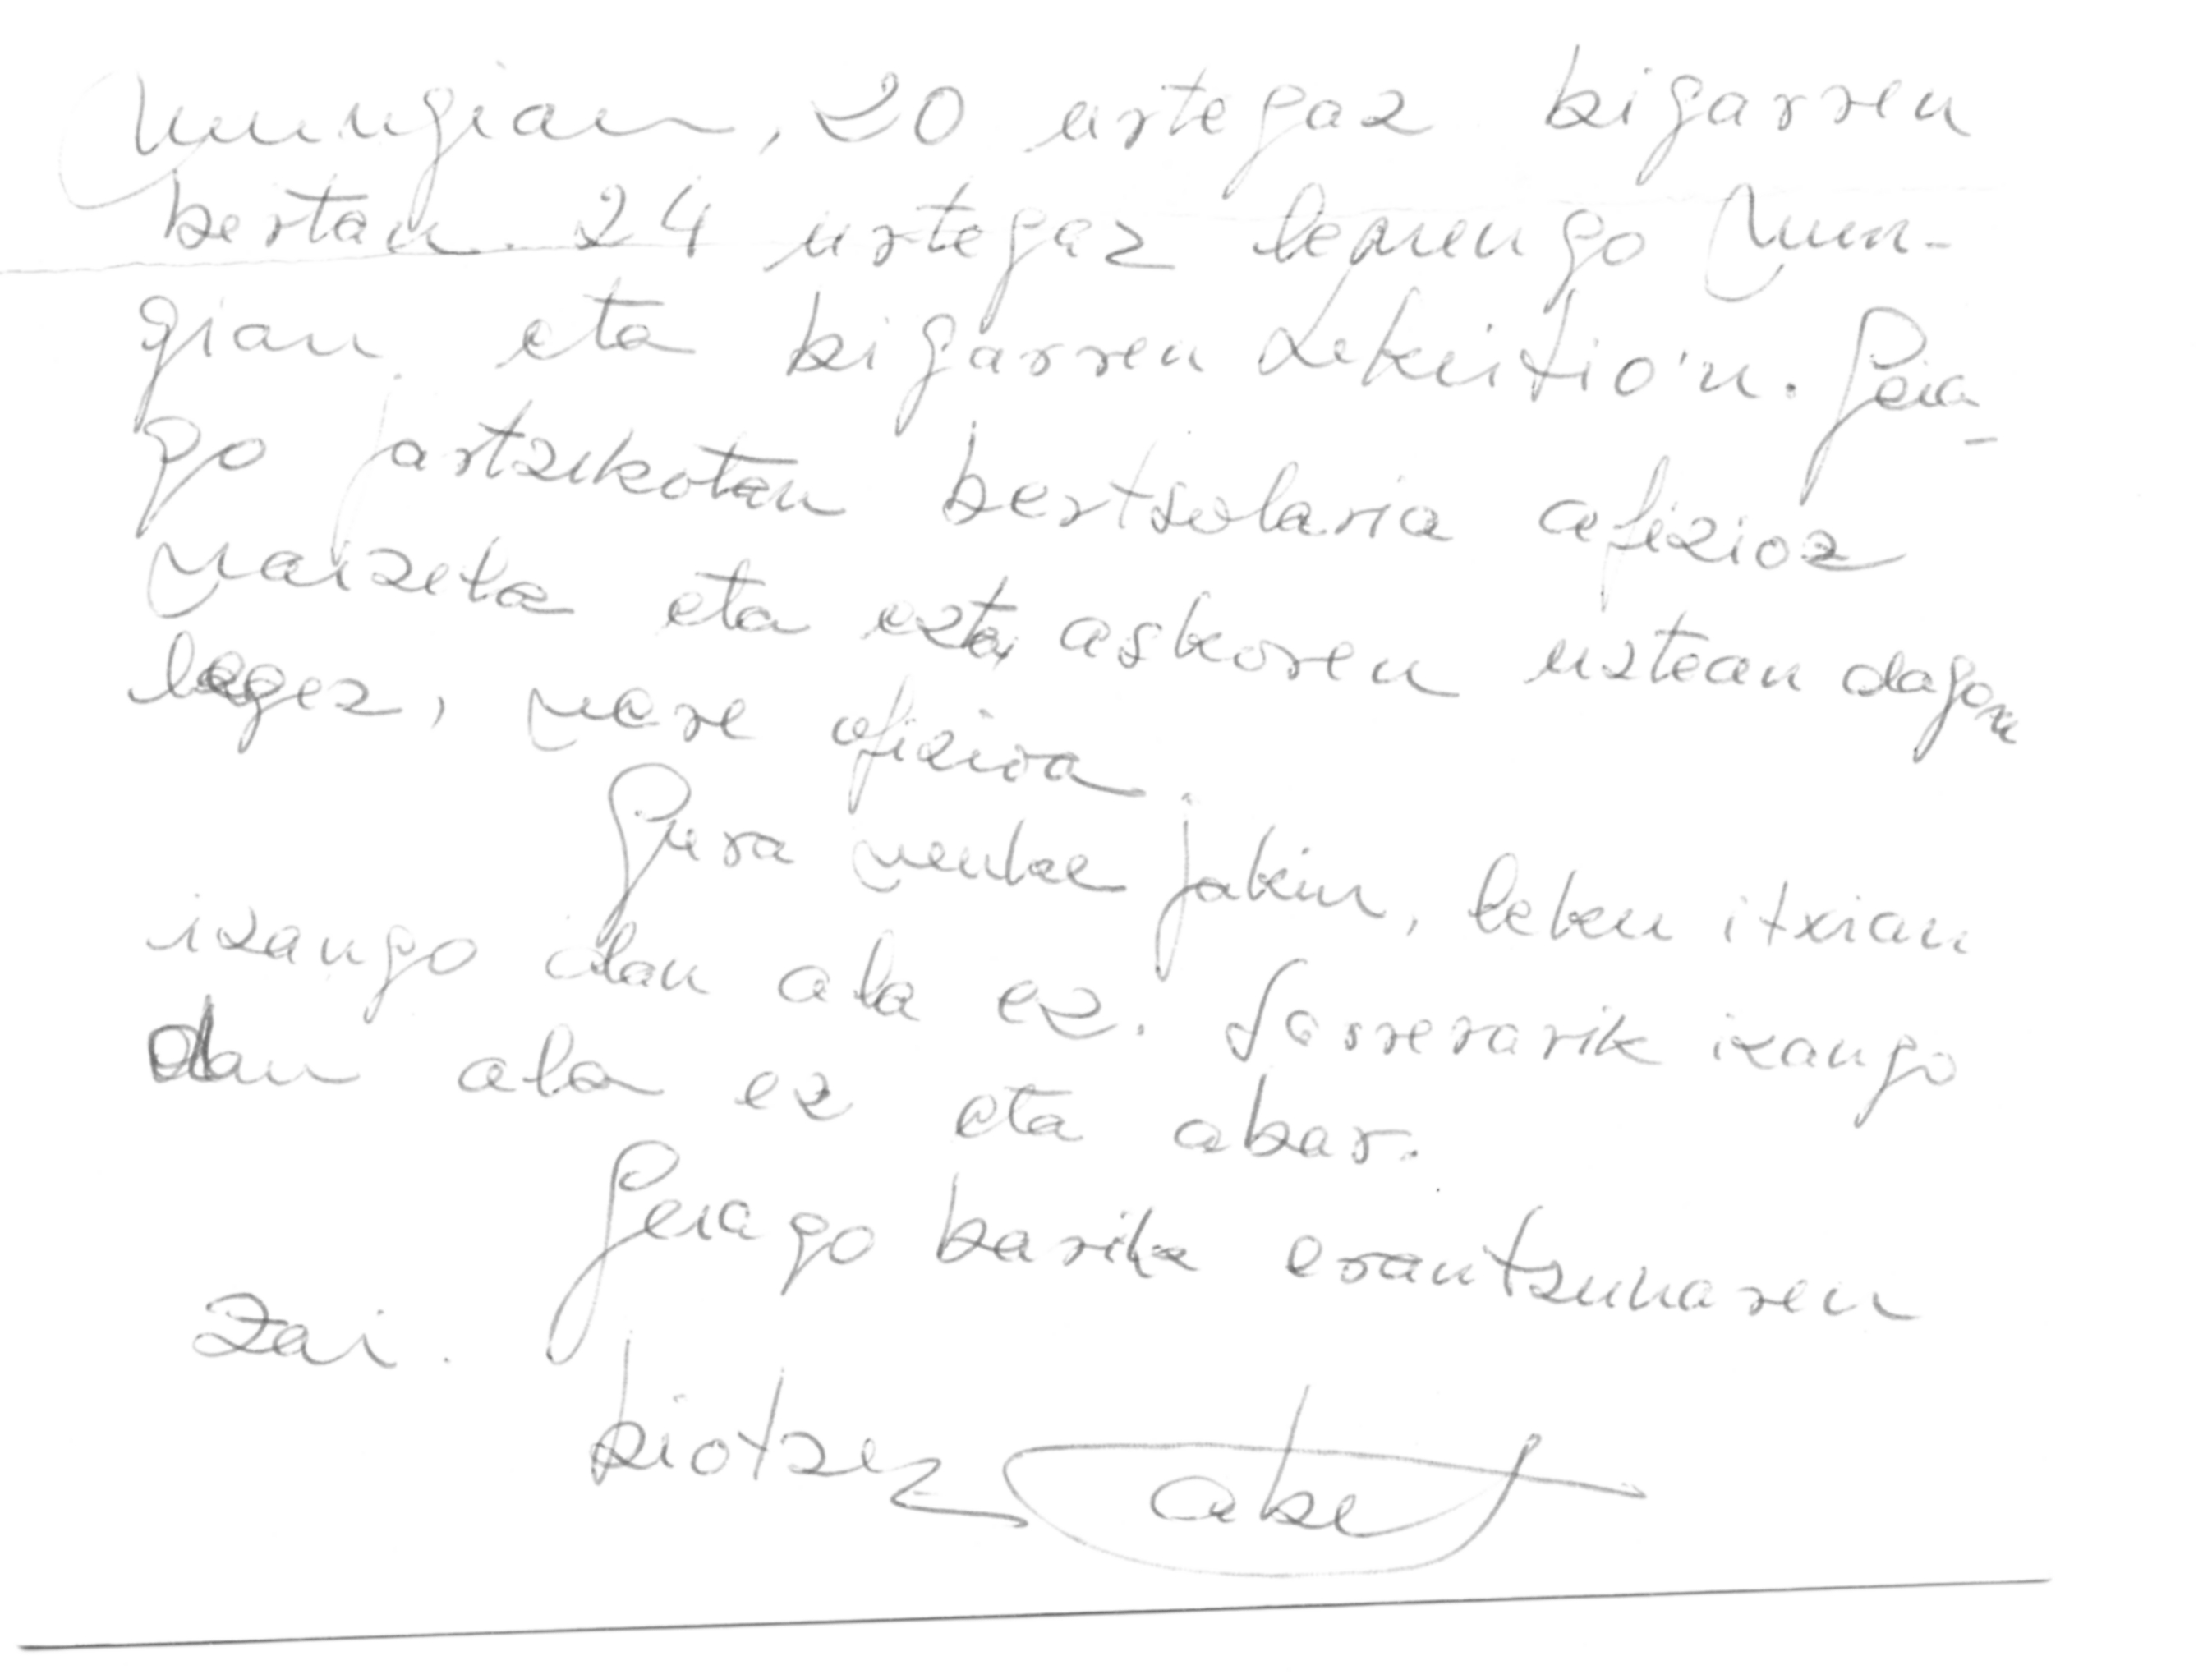 Mungian, 20 urtegaz bigarren
bertan. 24 urtegaz lenengo Mun-
gian eta bigarren Lekeitio'n. Geia-
go jartzekotan bertsolaria afizioz
naizela eta ezta, askoren ustean dagon
legez, nere ofizioa.
Gura neuke jakin, leku itxian
izango dan ala ez. Sarrerarik izango
dan ala ez eta abar.
Geiago barik erantzunaren
zai.
biotzez